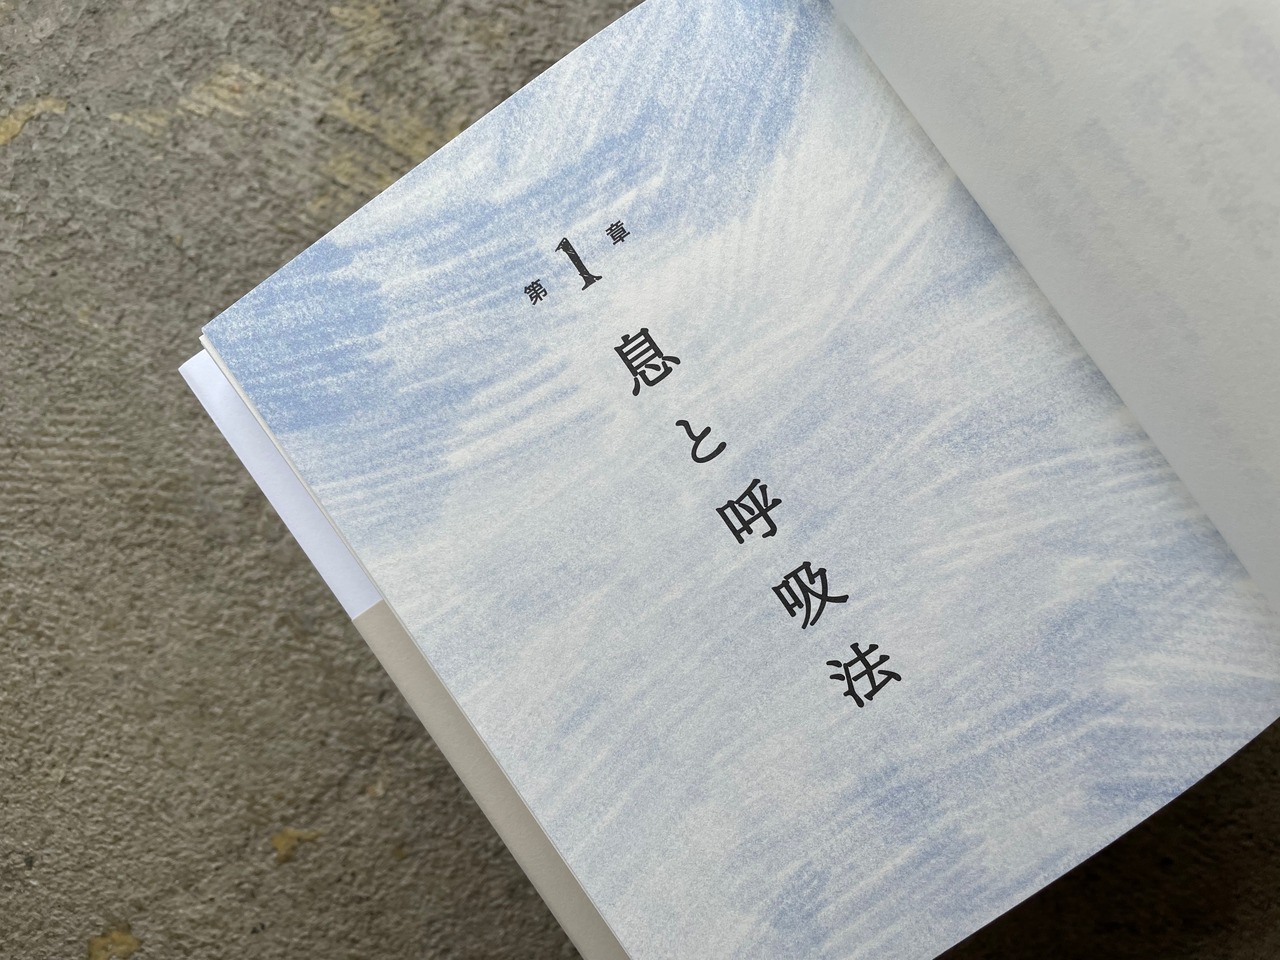 第1章
息と呼吸法